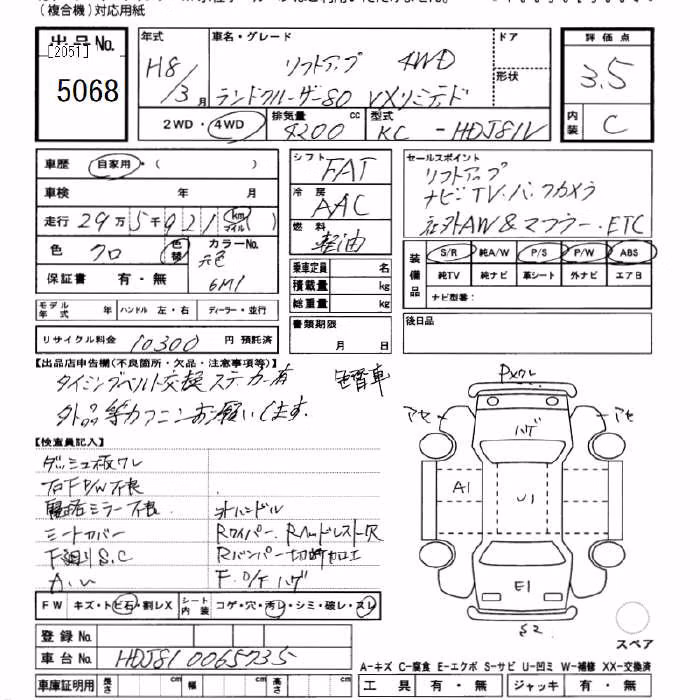 (複合機)対応用紙
出品No.
[2051]
5068
年式
H8/3月
車名・グレード
リフトアップ 4WD
ランドクルーザー80 VXリミテッド
ドア
形状
評価点
3.5
内装
C
2WD・4WD
排気量 4200 cc
型式 KC-HDJ81V
車歴 自家用・( )
車検 年 月
走行 29万5千921 km マイル ( )
色 クロ 色替
カラーNo. 元色 6M1
保証書 有・無
モデル年式 年 ハンドル 左・右 ディーラー・並行
リサイクル料金 10300 円 預託済
シフト FAT
冷房 AAC
燃料 軽油
乗車定員 名
積載量 kg
総重量 kg
書類期限
月 日
セールスポイント
リフトアップ
ナビ・TV・バックカメラ
社外AW&マフラー・ETC
装備品
S/R 純A/W P/S P/W ABS
純TV 純ナビ 革シート 外ナビ エアB
ナビ型番:
後日品
【出品店申告欄(不良箇所・欠品・注意事項等)】
タイミングベルト交換ステッカー有 色替車
【検査員記入】
ダッシュ板ワレ
ミラー不良 社外ハンドル
シートカバー Rワイパー、Rヘッドレスト欠
下廻りS.C
F.O/Fハゲ
FW キズ・トビ石・割レX シート内装 コゲ・穴・汚レ・シミ・破レ・スレ
登録No.
車台No. HDJ81 0065735
車庫証明用 長さ cm 幅 cm 高さ cm
アセ
アセ
ハゲ
A1
U1
E1
S2
スペア
A-キズ C-腐食 E-エクボ S-サビ U-凹ミ W-補修 XX-交換済
工具 有・無 ジャッキ 有・無